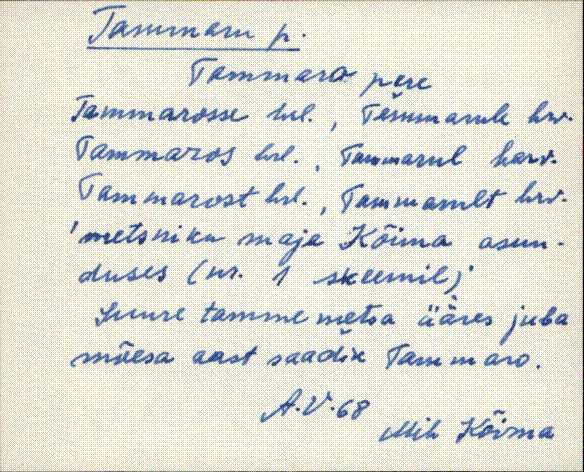 Tammaru p.
Tammaro pere
Tammarosse hrl., Tammarule hrv.
Tammaros hrl., Tammarul harv.
Tammarost hrl., Tammarult hrv.
'metsniku maja Kõima asun-
duses (nr. 1 skeemil)'
Suure tamme metsa ääres juba
mõesa aast saadik Tammaro.
A.V. 68
Mih Kõima